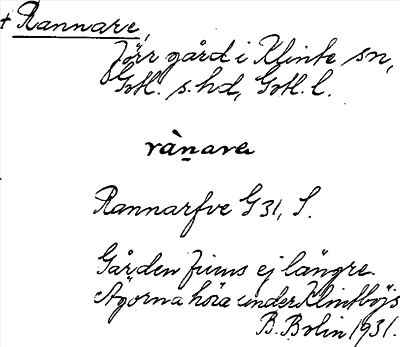 + Rannare,
förr gård i Klinte sn,
Gotl. s. hd, Gotl. l.
rànarɐ
Rannarfve G 31, S.
Gården finns ej längre.
Ägorna höra under Klintböjs
B. Bolin 1931.